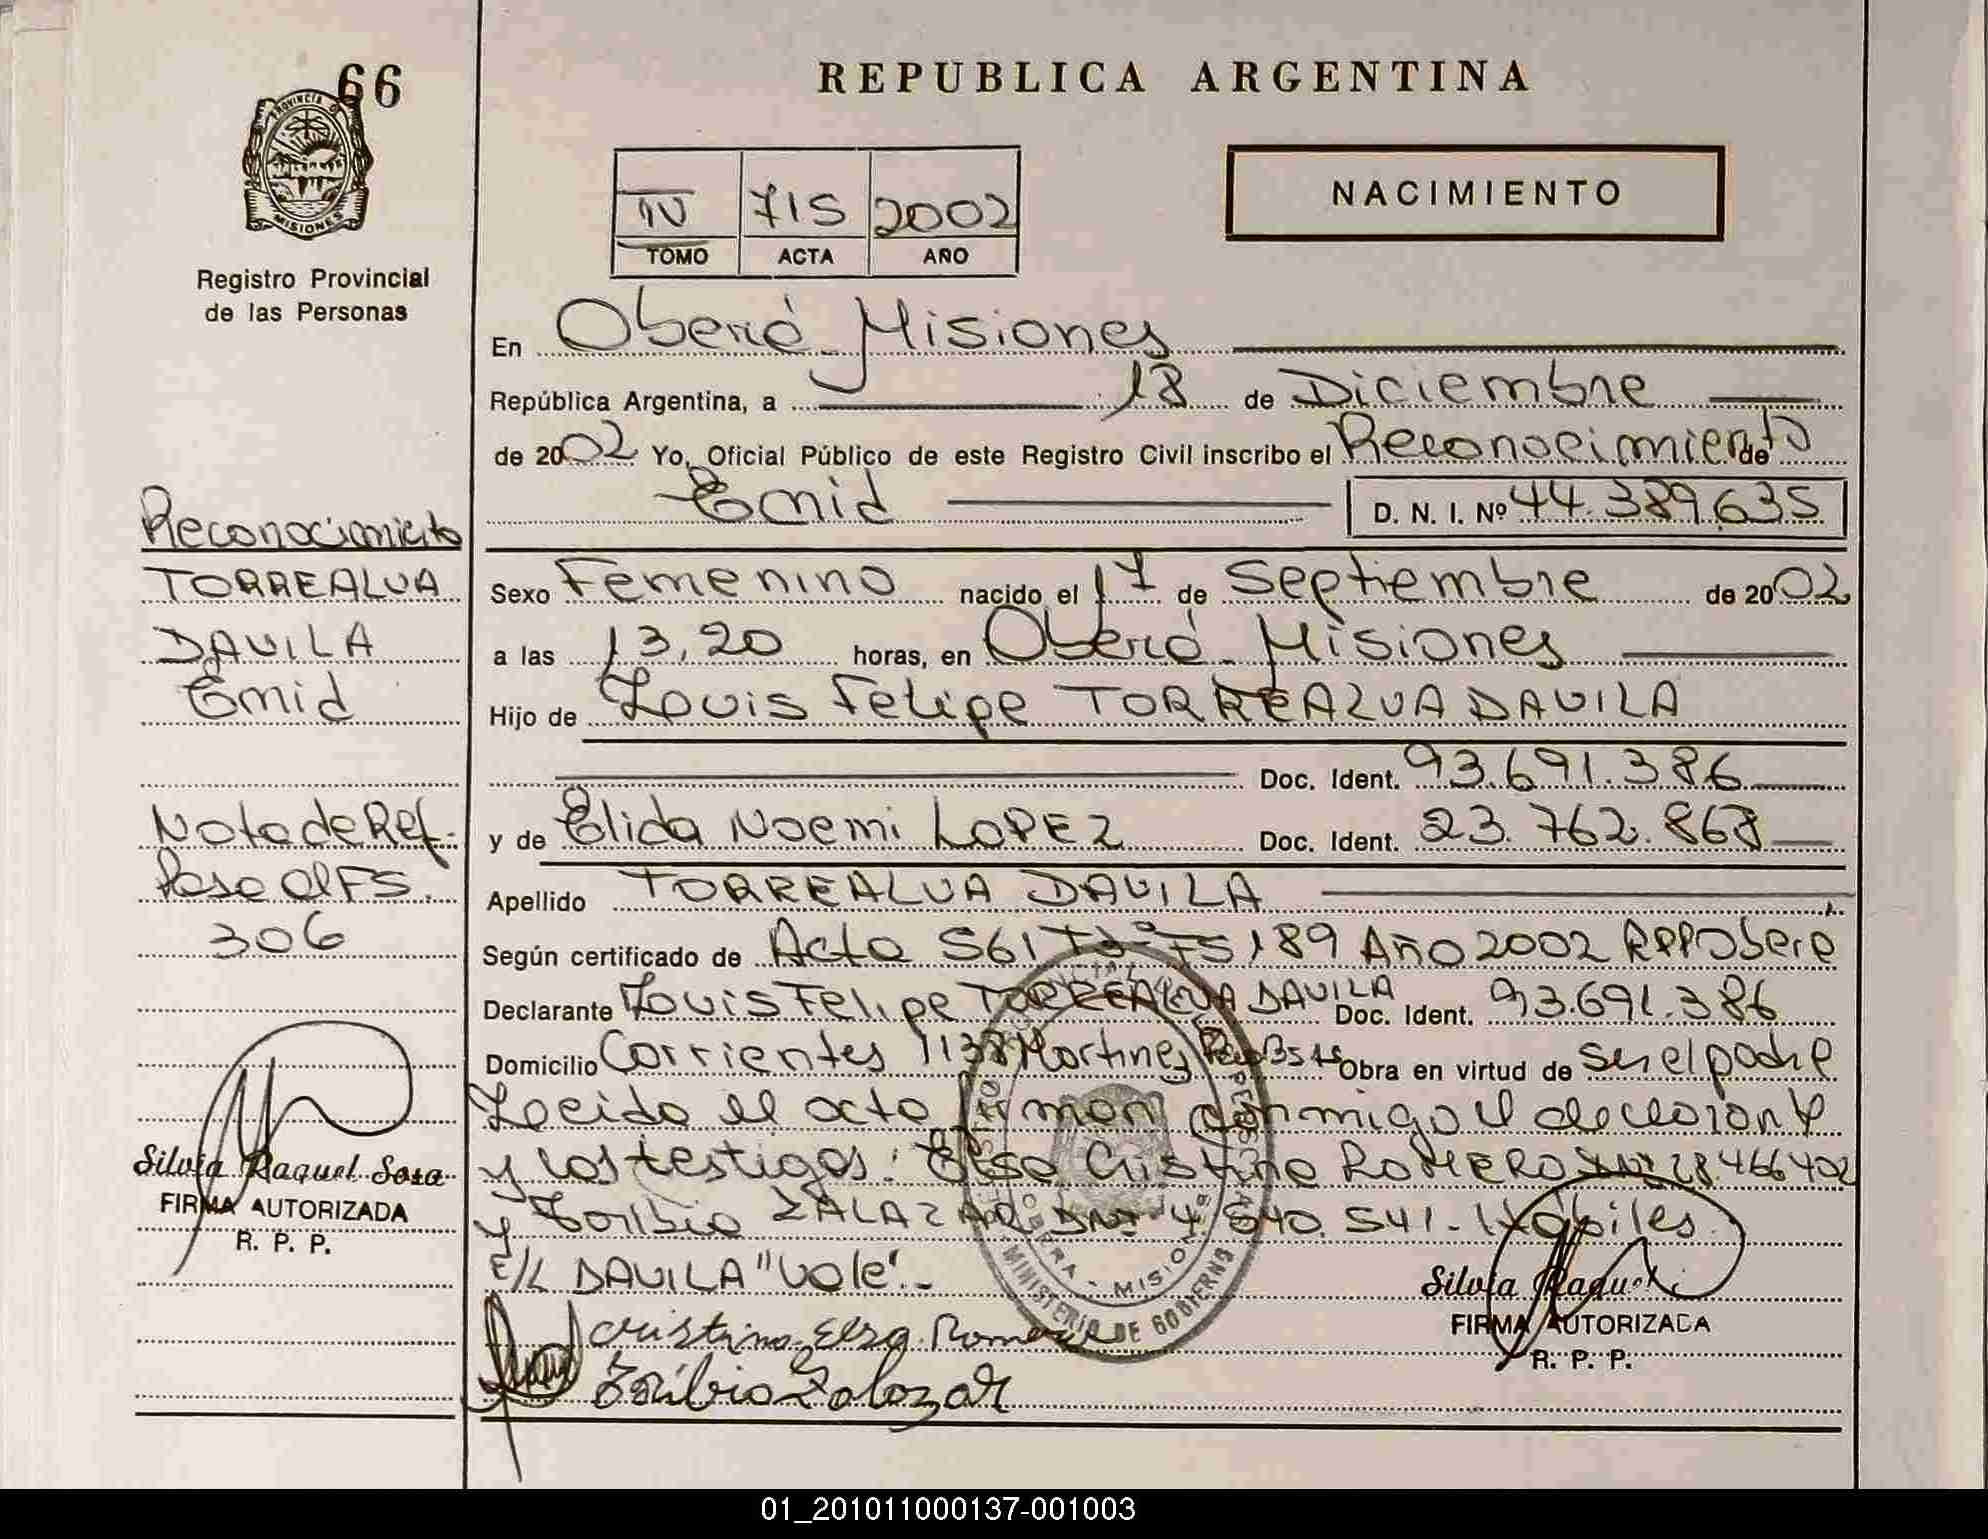 66
PROVINCIA DE
MISIONES
Registro Provincial
de las Personas
REPUBLICA ARGENTINA
NACIMIENTO
IV 715 2002
TOMO ACTA AÑO
En Oberá Misiones
República Argentina, a 18 de Diciembre
de 2002 Yo, Oficial Público de este Registro Civil inscribo el Reconocimiento de
Enid D. N. I. Nº 44.389.635
Sexo Femenino nacido el 17 de Septiembre de 2002
a las 13,20 horas, en Oberá - Misiones
Hijo de Louis Felipe TORREALVA DAVILA
Doc. Ident. 93.691.386
y de Elida Noemi LOPEZ Doc. Ident. 23.762.868
Apellido TORREALVA DAVILA
Según certificado de Acta 561 Tº 3 FS 189 Año 2002 RPP Obera
Declarante Louis Felipe TORREALVA DAVILA Doc. Ident. 93.691.386
Domicilio Corrientes 1138 Martinez Bs As Obra en virtud de ser el padre
Leida el acta firman conmigo el declarante
y los testigos: Elsa Cristina ROMERO DNI 28.466.402
y Toribio ZALAZAR DNI 4.640.541 - Hábiles.
E/L DAVILA "Vale".-
Cristina Elsa Romero
Toribio Zalazar
Silvia Raquel
FIRMA AUTORIZADA
R. P. P.
Reconocimiento
TORREALVA
DAVILA
Enid
Nota de Ref.
Pase al FS.
306
Silvia Raquel Sosa
FIRMA AUTORIZADA
R. P. P.
OBERA - MISIONES
MINISTERIO DE GOBIERNO
01_201011000137-001003